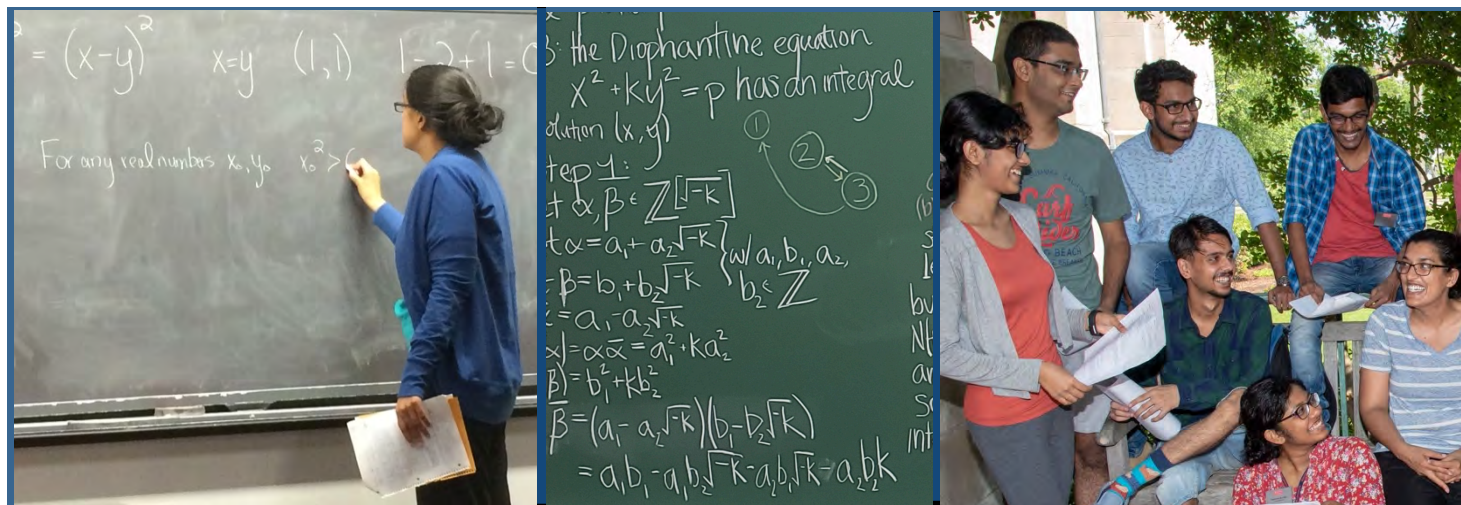 = (x-y)²   x=y   (1,1)   1-2+1=0
For any real numbers x₀, y₀   x₀² >
3: the Diophantine equation
x² + ky² = p has an integral
solution (x, y)
①
②
③
step 1:
α, β ∈ ℤ[√-k]
α = a₁ + a₂√-k
w/ a₁, b₁, a₂,
β = b₁ + b₂√-k
b₂ ∈ ℤ
= a₁ - a₂√-k
= αᾱ = a₁² + ka₂²
= b₁² + kb₂²
β̄ = (a₁ - a₂√-k)(b₁ - b₂√-k)
= a₁b₁ - a₁b₂√-k - a₂b₁√-k - a₂b₂k
BEACH